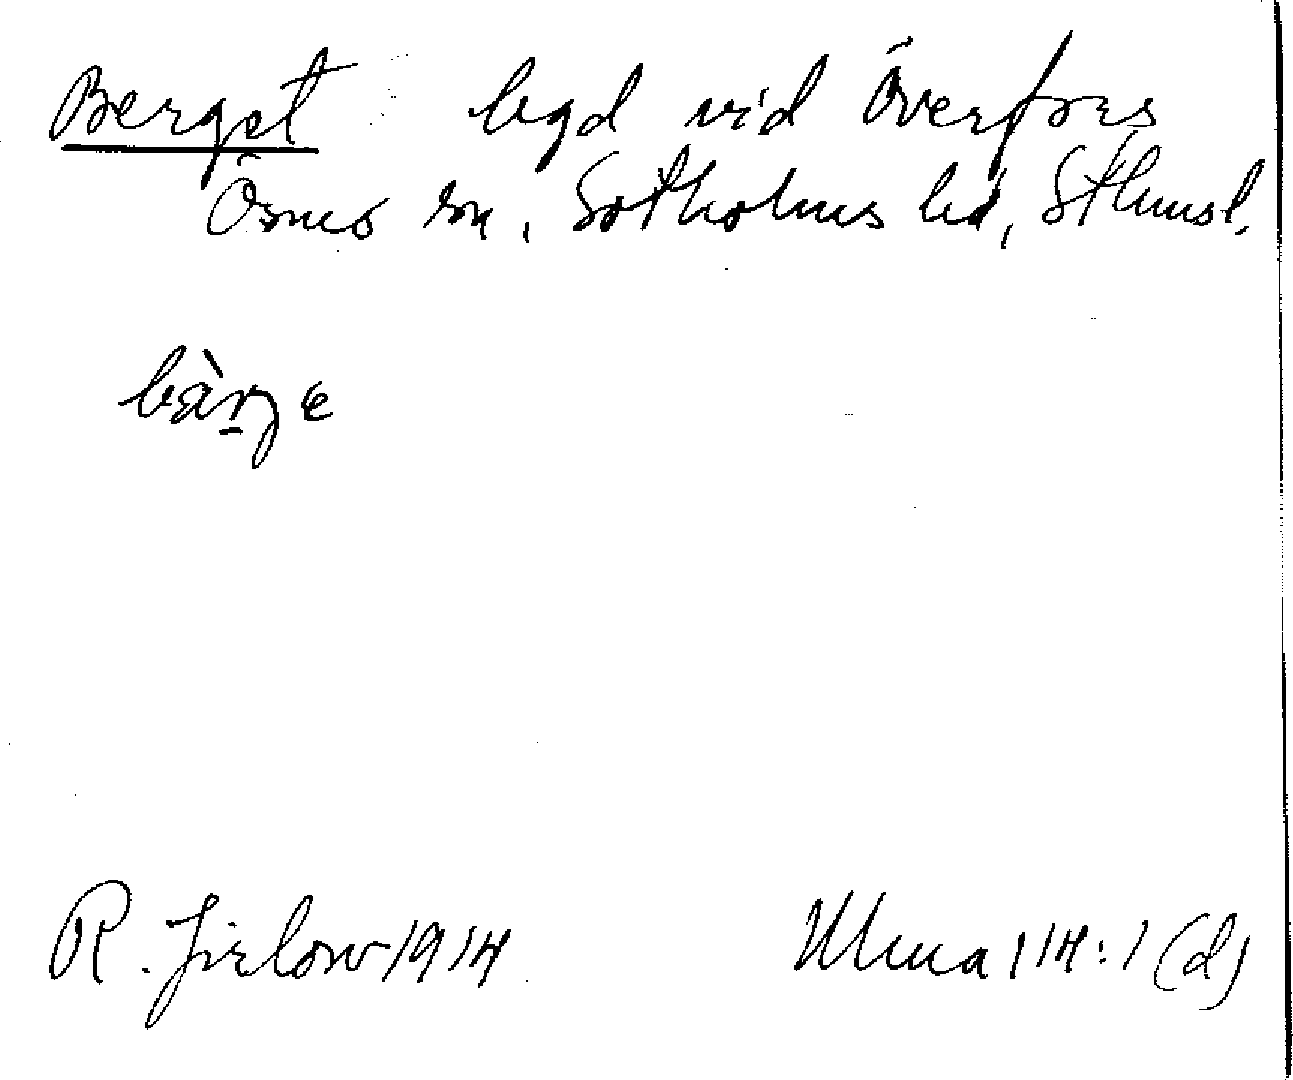 Berget lgd vid Överfors
Ösmo sn, Sotholms hd, Sthmsl.
bàrʒe
R. Jirlow 1914
Ulma 114:1 (d)